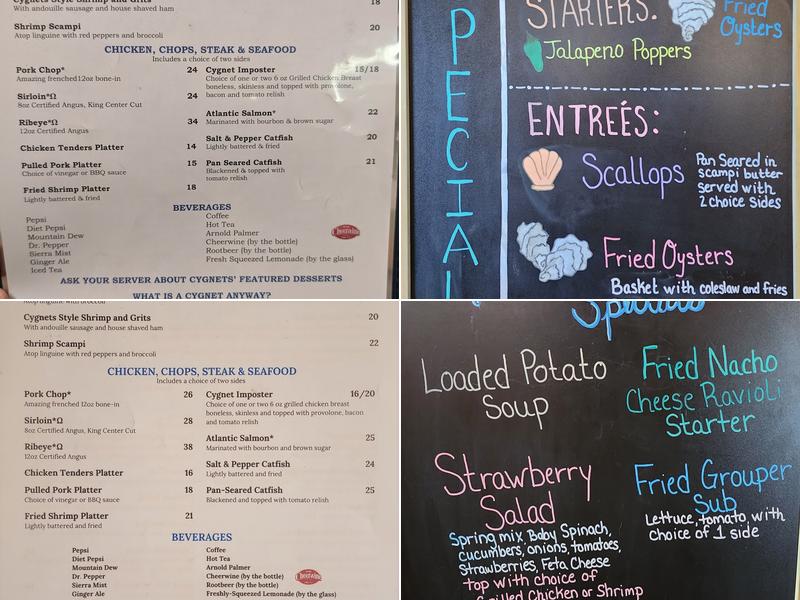 Cygnets Style Shrimp and Grits 18
With andouille sausage and house shaved ham
Shrimp Scampi 20
Atop linguine with red peppers and broccoli
CHICKEN, CHOPS, STEAK & SEAFOOD
Includes a choice of two sides
Pork Chop* 24
Amazing frenched12oz bone-in
Sirloin*Ω 24
8oz Certified Angus, King Center Cut
Ribeye*Ω 34
12oz Certified Angus
Chicken Tenders Platter 14
Pulled Pork Platter 15
Choice of vinegar or BBQ sauce
Fried Shrimp Platter 18
Lightly battered & fried
Cygnet Imposter 15/18
Choice of one or two 6 oz Grilled Chicken Breast
boneless, skinless and topped with provolone,
bacon and tomato relish
Atlantic Salmon* 22
Marinated with bourbon & brown sugar
Salt & Pepper Catfish 20
Lightly battered & fried
Pan Seared Catfish 21
Blackened & topped with
tomato relish
BEVERAGES
Pepsi
Diet Pepsi
Mountain Dew
Dr. Pepper
Sierra Mist
Ginger Ale
Iced Tea
Coffee
Hot Tea
Arnold Palmer
Cheerwine (by the bottle)
Rootbeer (by the bottle)
Fresh Squeezed Lemonade (by the glass)
Cheerwine
ASK YOUR SERVER ABOUT CYGNETS' FEATURED DESSERTS
WHAT IS A CYGNET ANYWAY?
PECIAL
STARTERS:
Fried
Oysters
Jalapeno Poppers
ENTREÉS:
Scallops
Pan Seared in
scampi butter
served with
2 choice sides
Fried Oysters
Basket with coleslaw and fries
Atop linguine with red peppers and broccoli
Cygnets Style Shrimp and Grits 20
With andouille sausage and house shaved ham
Shrimp Scampi 22
Atop linguine with red peppers and broccoli
CHICKEN, CHOPS, STEAK & SEAFOOD
Includes a choice of two sides
Pork Chop* 26
Amazing frenched 12oz bone-in
Sirloin*Ω 28
8oz Certified Angus, King Center Cut
Ribeye*Ω 38
12oz Certified Angus
Chicken Tenders Platter 16
Pulled Pork Platter 18
Choice of vinegar or BBQ sauce
Fried Shrimp Platter 21
Lightly battered and fried
Cygnet Imposter 16/20
Choice of one or two 6 oz grilled chicken breast
boneless, skinless and topped with provolone, bacon
and tomato relish
Atlantic Salmon* 25
Marinated with bourbon and brown sugar
Salt & Pepper Catfish 24
Lightly battered and fried
Pan-Seared Catfish 25
Blackened and topped with tomato relish
BEVERAGES
Pepsi
Diet Pepsi
Mountain Dew
Dr. Pepper
Sierra Mist
Ginger Ale
Coffee
Hot Tea
Arnold Palmer
Cheerwine (by the bottle)
Rootbeer (by the bottle)
Freshly-Squeezed Lemonade (by the glass)
Cheerwine
Specials
Loaded Potato
Soup
Fried Nacho
Cheese Ravioli
Starter
Strawberry
Salad
Spring mix, Baby Spinach,
cucumbers, onions, tomatoes,
Strawberries, Feta Cheese
top with choice of
Grilled Chicken or Shrimp
Fried Grouper
Sub
Lettuce, tomato, with
choice of 1 side